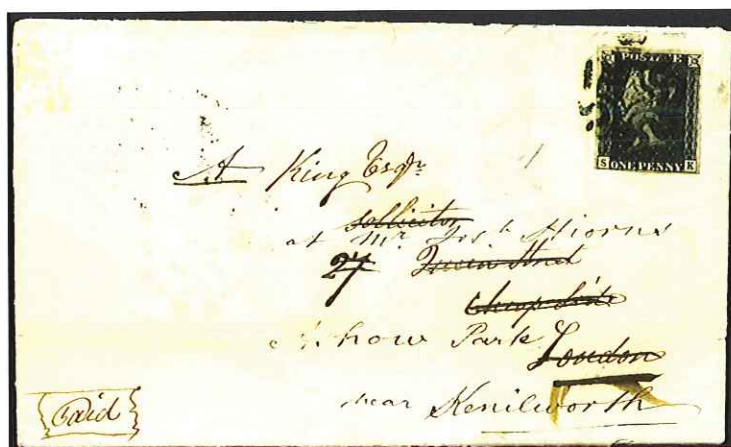 POSTAGE
S ONE PENNY K
A King Esqr.
Sollicitor
at Mr Josh Hiorns
27 Queen Street
Cheapside
Ashow Park
London
near Kenilworth
Paid